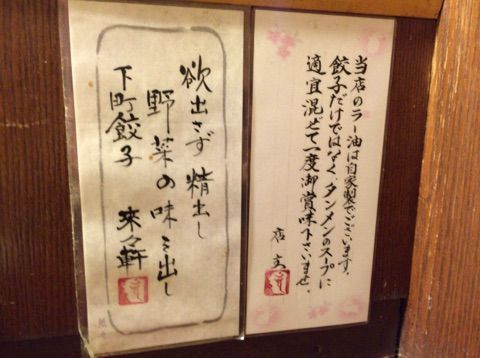 当店のラー油は自家製でございます。
餃子だけではなく、タンメンのスープに
適宜混ぜて一度御賞味下さいませ。
店主
欲出さず 精出し
野菜の味ミ出し
下町餃子 来々軒